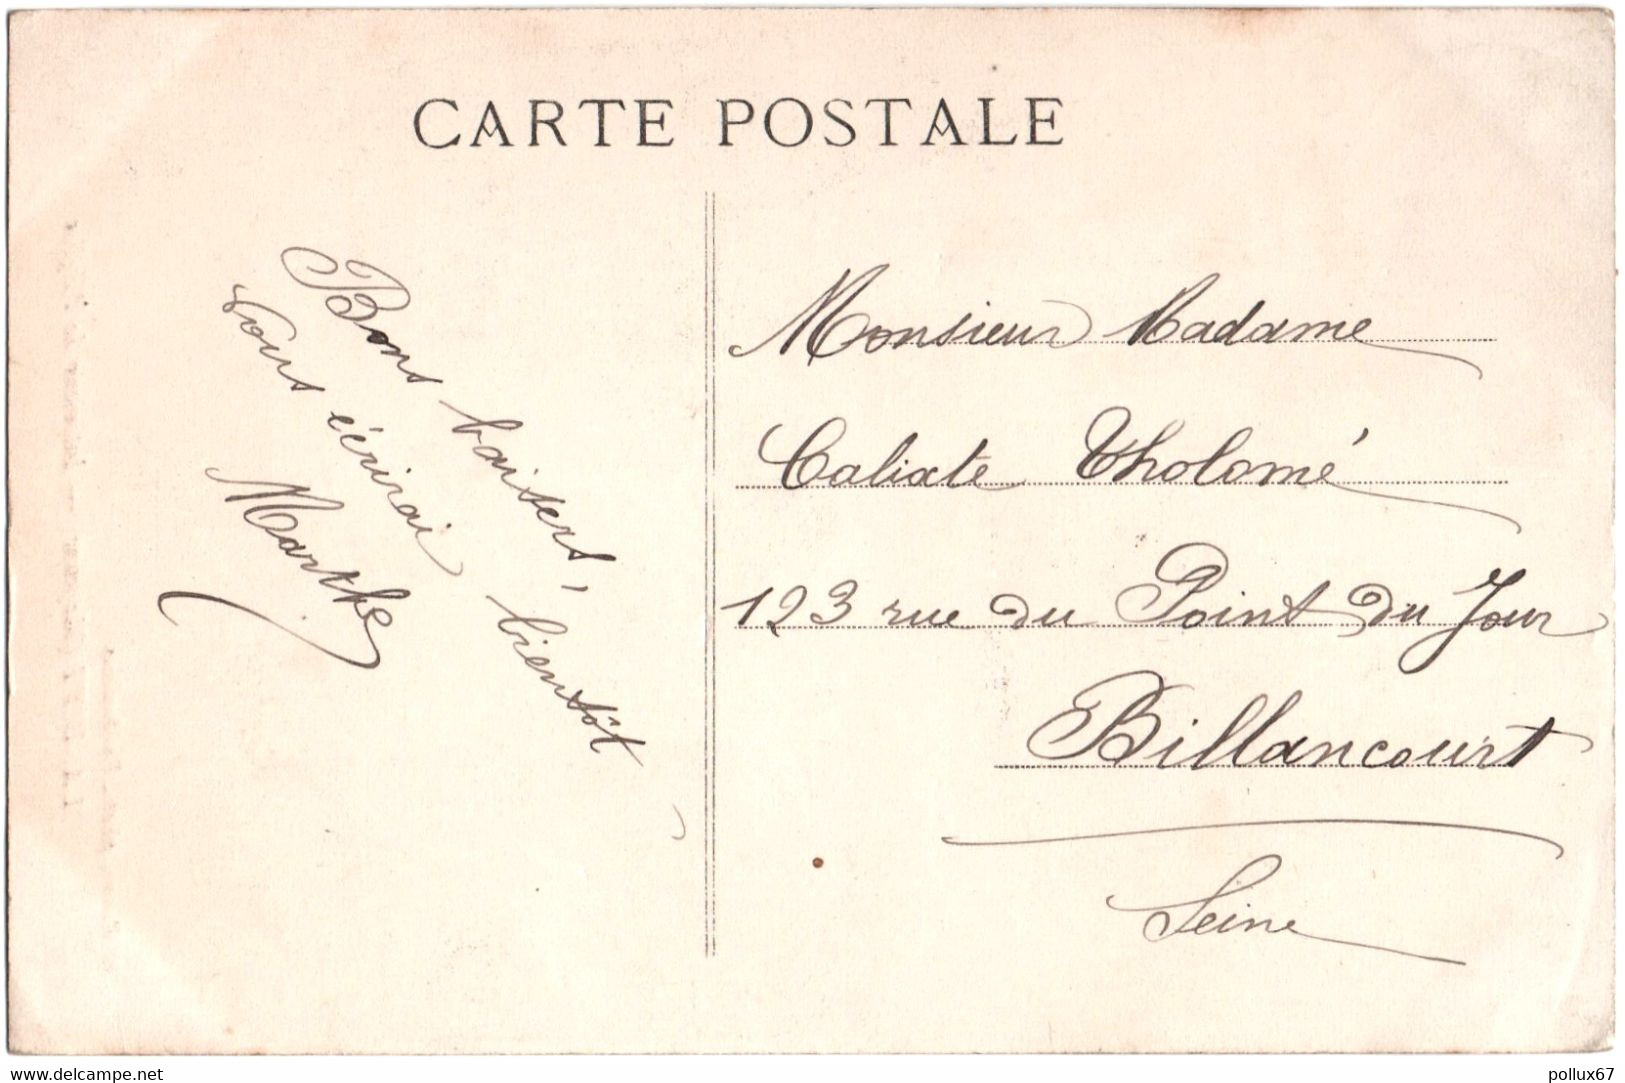 CARTE POSTALE
Bons baisers,
Vous écrirai bientôt
Marthe
Monsieur Madame
Calixte Tholomé
123 rue du Point du Jour
Billancourt
Seine
www.delcampe.net
pollux67